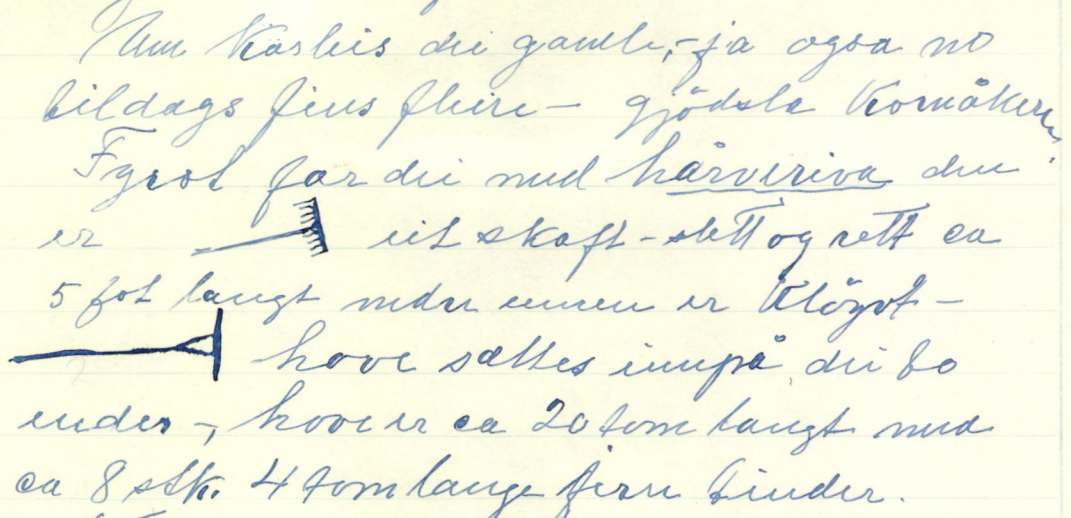 Um Korleis dei gamle,- ja også no
tildags fins fleire - gjödsla Kornåkeren,
Fyrst får dei med hårveriva den
er eit skaft - slett og rett ca
5 fot langt nedre enden er Klöyvt -
hove sættes innpå dei to
ender -, hove er ca 20 tom langt med
ca 8 stk. 4 tom lange jern tinder.